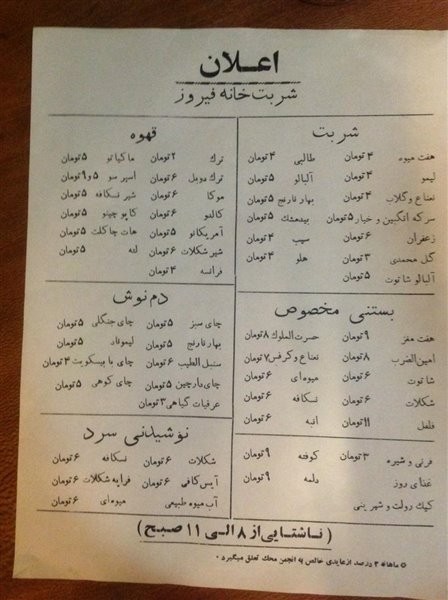 اعلان
شربت خانه فیروز
شربت
هفت میوه ۴ تومان طالبی ۴ تومان
لیمو ۴ تومان آلبالو ۵ تومان
نعناع و گلاب ۴ تومان بهار نارنج ۵ تومان
سرکه انگبین و خیار ۵ تومان بیدمشک ۵ تومان
زعفران ۶ تومان سیب ۴ تومان
گل محمدی ۳ تومان هلو ۴ تومان
آلبالو شاتوت ۵ تومان
بستنی مخصوص
هفت مغز ۹ تومان حسرت الملوک ۸ تومان
امین الضرب ۸ تومان نعناع و کرفس ۷ تومان
شاتوت ۶ تومان میوه ای ۶ تومان
شکلات ۶ تومان نسکافه ۶ تومان
فلفل ۱۱ تومان انبه ۶ تومان
فرنی و شیره ۳ تومان کوفته ۹ تومان
غذای روز دلمه ۹ تومان
کیک رولت و شیرینی
قهوه
ترک ۲ تومان ماکیاتو ۵ تومان
ترک دوبل ۶ تومان اسپرسو ۵ و ۹ تومان
موکا ۶ تومان شیر نسکافه ۵ تومان
کالدو ۶ تومان کاپوچینو ۵ تومان
آمریکانو ۵ تومان هات چاکلت ۵ تومان
شیر شکلات ۶ تومان لته ۵ تومان
فرانسه ۴ تومان
دم نوش
چای سبز ۵ تومان چای جنگلی ۵ تومان
بهار نارنج ۵ تومان لیموناد ۵ تومان
سنبل الطیب ۶ تومان چای با بیسکویت ۳ تومان
چای دارچین ۵ تومان چای کوهی ۵ تومان
عرقیات گیاهی ۳ تومان
نوشیدنی سرد
شکلات ۶ تومان نسکافه ۶ تومان
آیس کافی ۶ تومان فراپه شکلات ۶ تومان
آب میوه طبیعی میوه ای ۶ تومان
(ناشتایی از ۸ الی ۱۱ صبح)
ماهانه ۲ درصد از عایدی خالص به انجمن محک تعلق میگیرد ۰